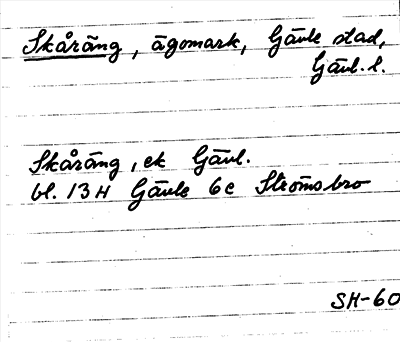 Skåräng, ägomark, Gävle stad,
Gävl. l.
Skåräng, ek Gävl.
bl. 13H Gävle 6c Strömsbro
SH-60